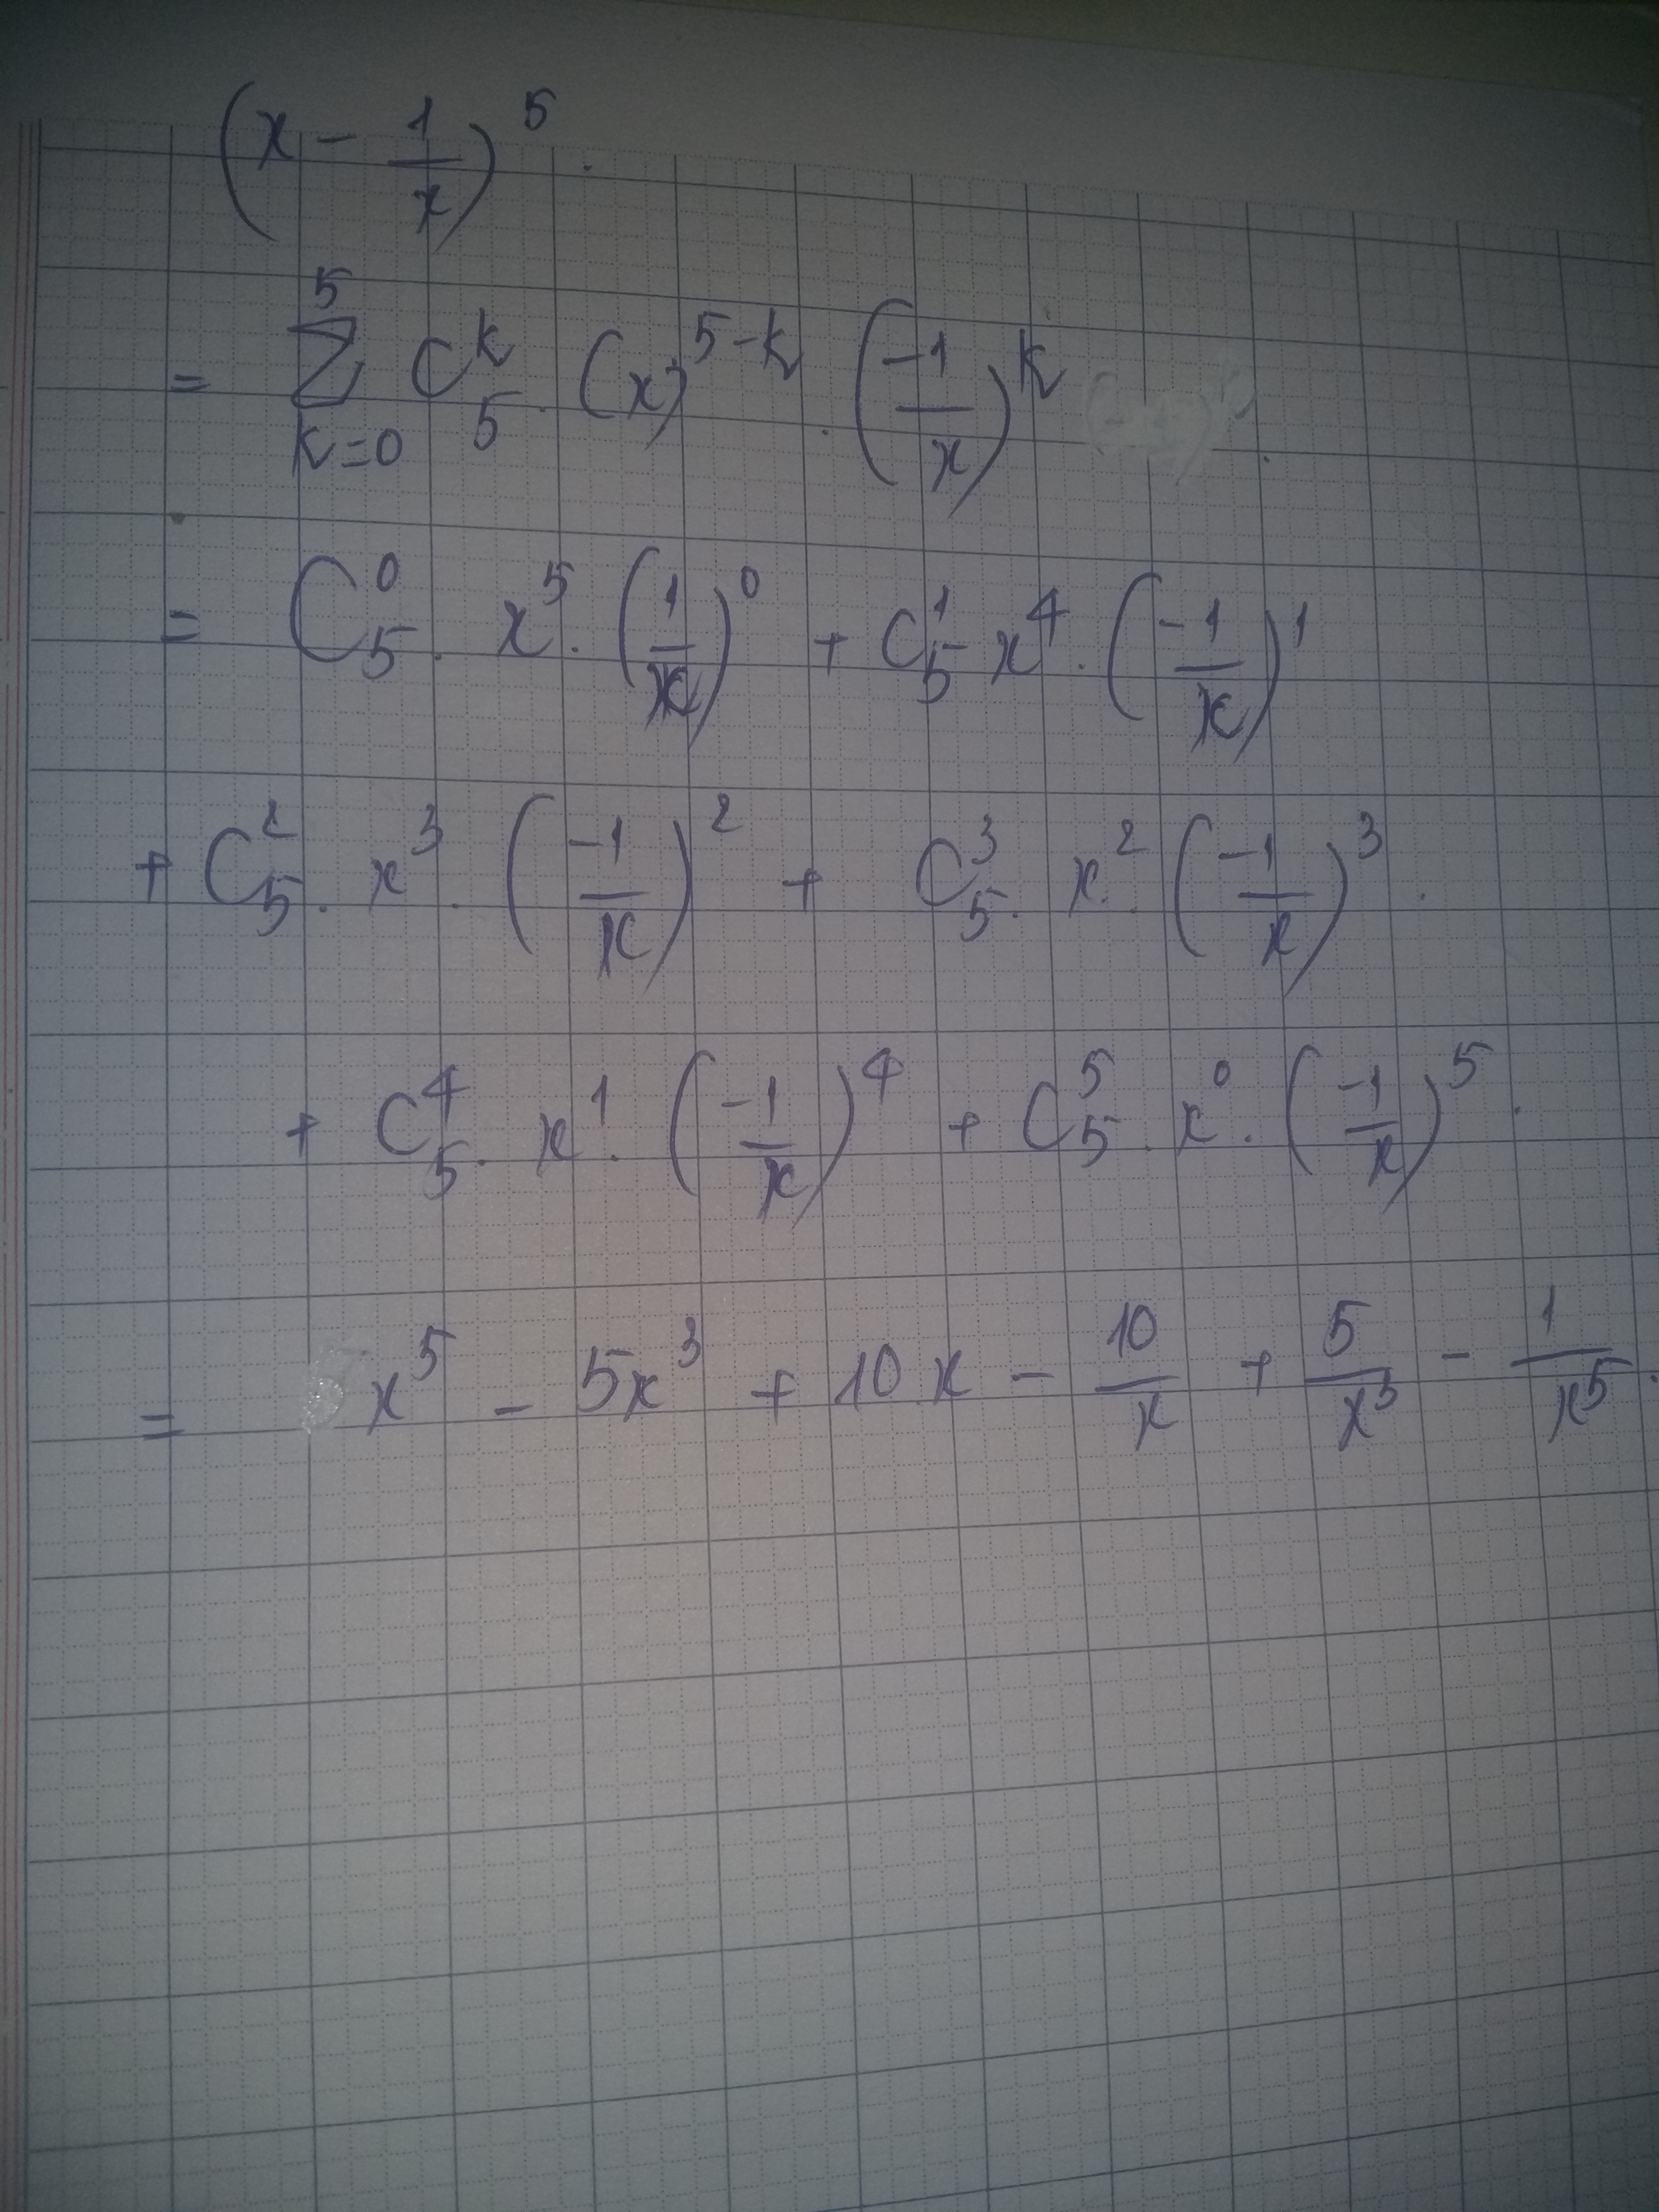 (x - 1/x)^5 .
= ∑_{k=0}^{5} C_5^k . (x)^{5-k} . (-1/x)^k .
= C_5^0 . x^5 . (1/x)^0 + C_5^1 x^4 . (-1/x)^1
+ C_5^2 . x^3 . (-1/x)^2 + C_5^3 . x^2 . (-1/x)^3 .
+ C_5^4 . x^1 . (-1/x)^4 + C_5^5 . x^0 . (-1/x)^5 .
= x^5 - 5x^3 + 10x - 10/x + 5/x^3 - 1/x^5 .